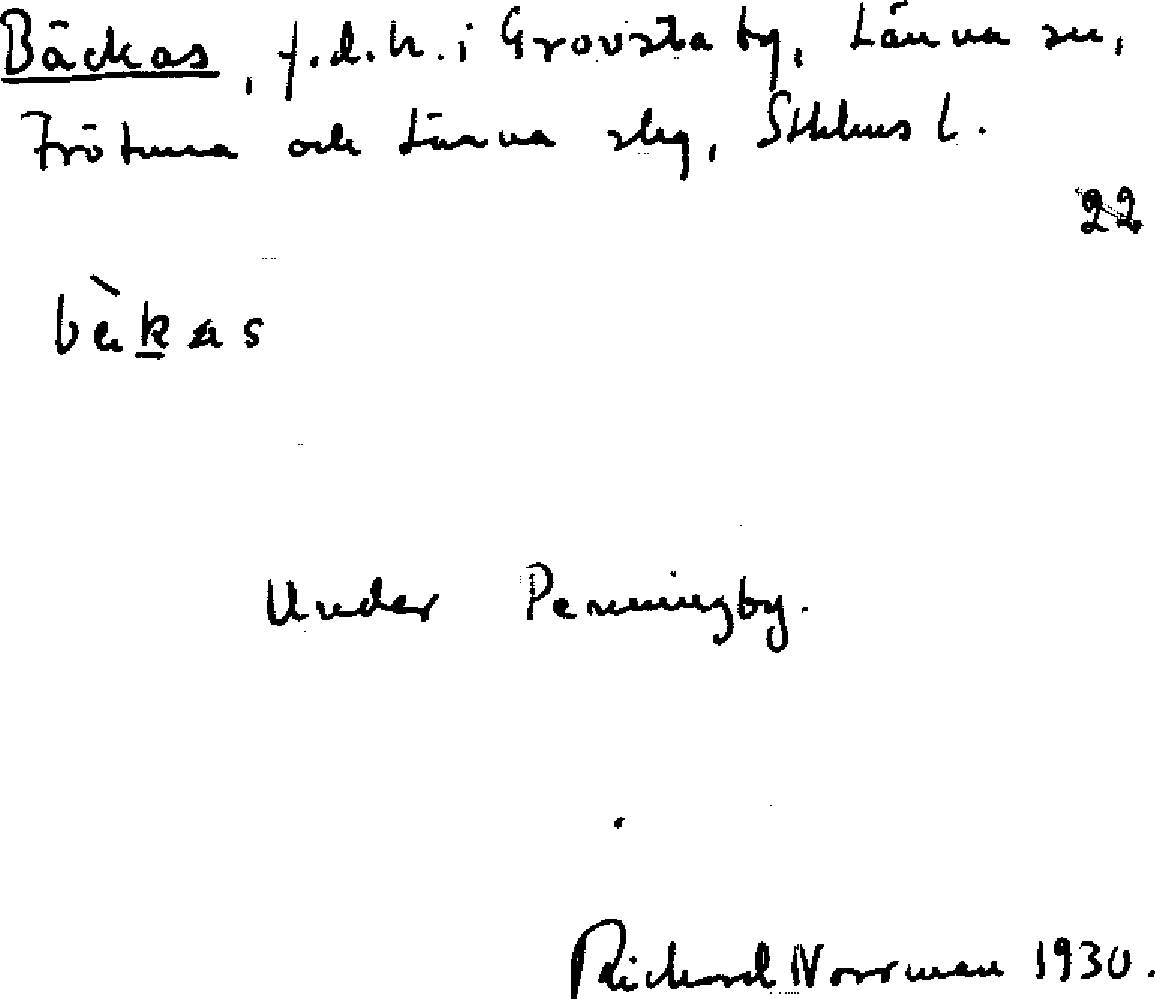 Bäckas, f.d.h. i Grovsta by, Länna sn,
Frötuna och Länna skg, Sthlms l.
22
bèkas
Under Penningby.
Richard Norrman 1930.